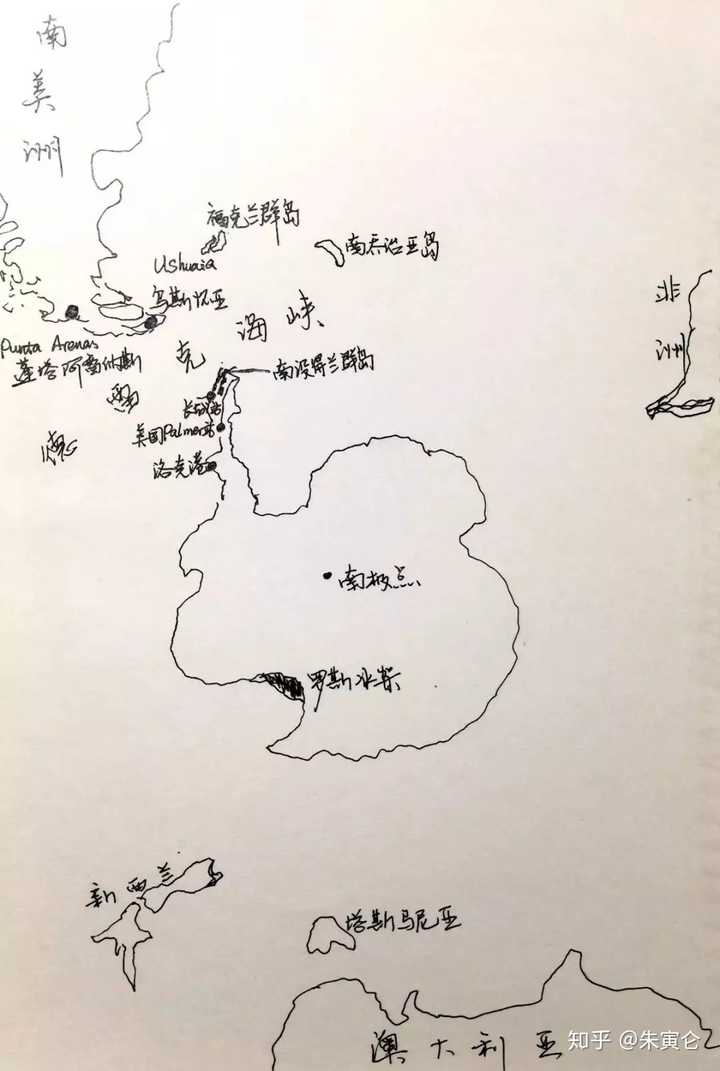 南美洲
福克兰群岛
南乔治亚岛
Ushuaia
乌斯怀亚
非洲
德雷克海峡
Punta Arenas
蓬塔阿雷纳斯
南设得兰群岛
长城站
美国Palmer站
洛克港
南极点
罗斯冰架
新西兰
塔斯马尼亚
澳大利亚
知乎 @朱寅仑